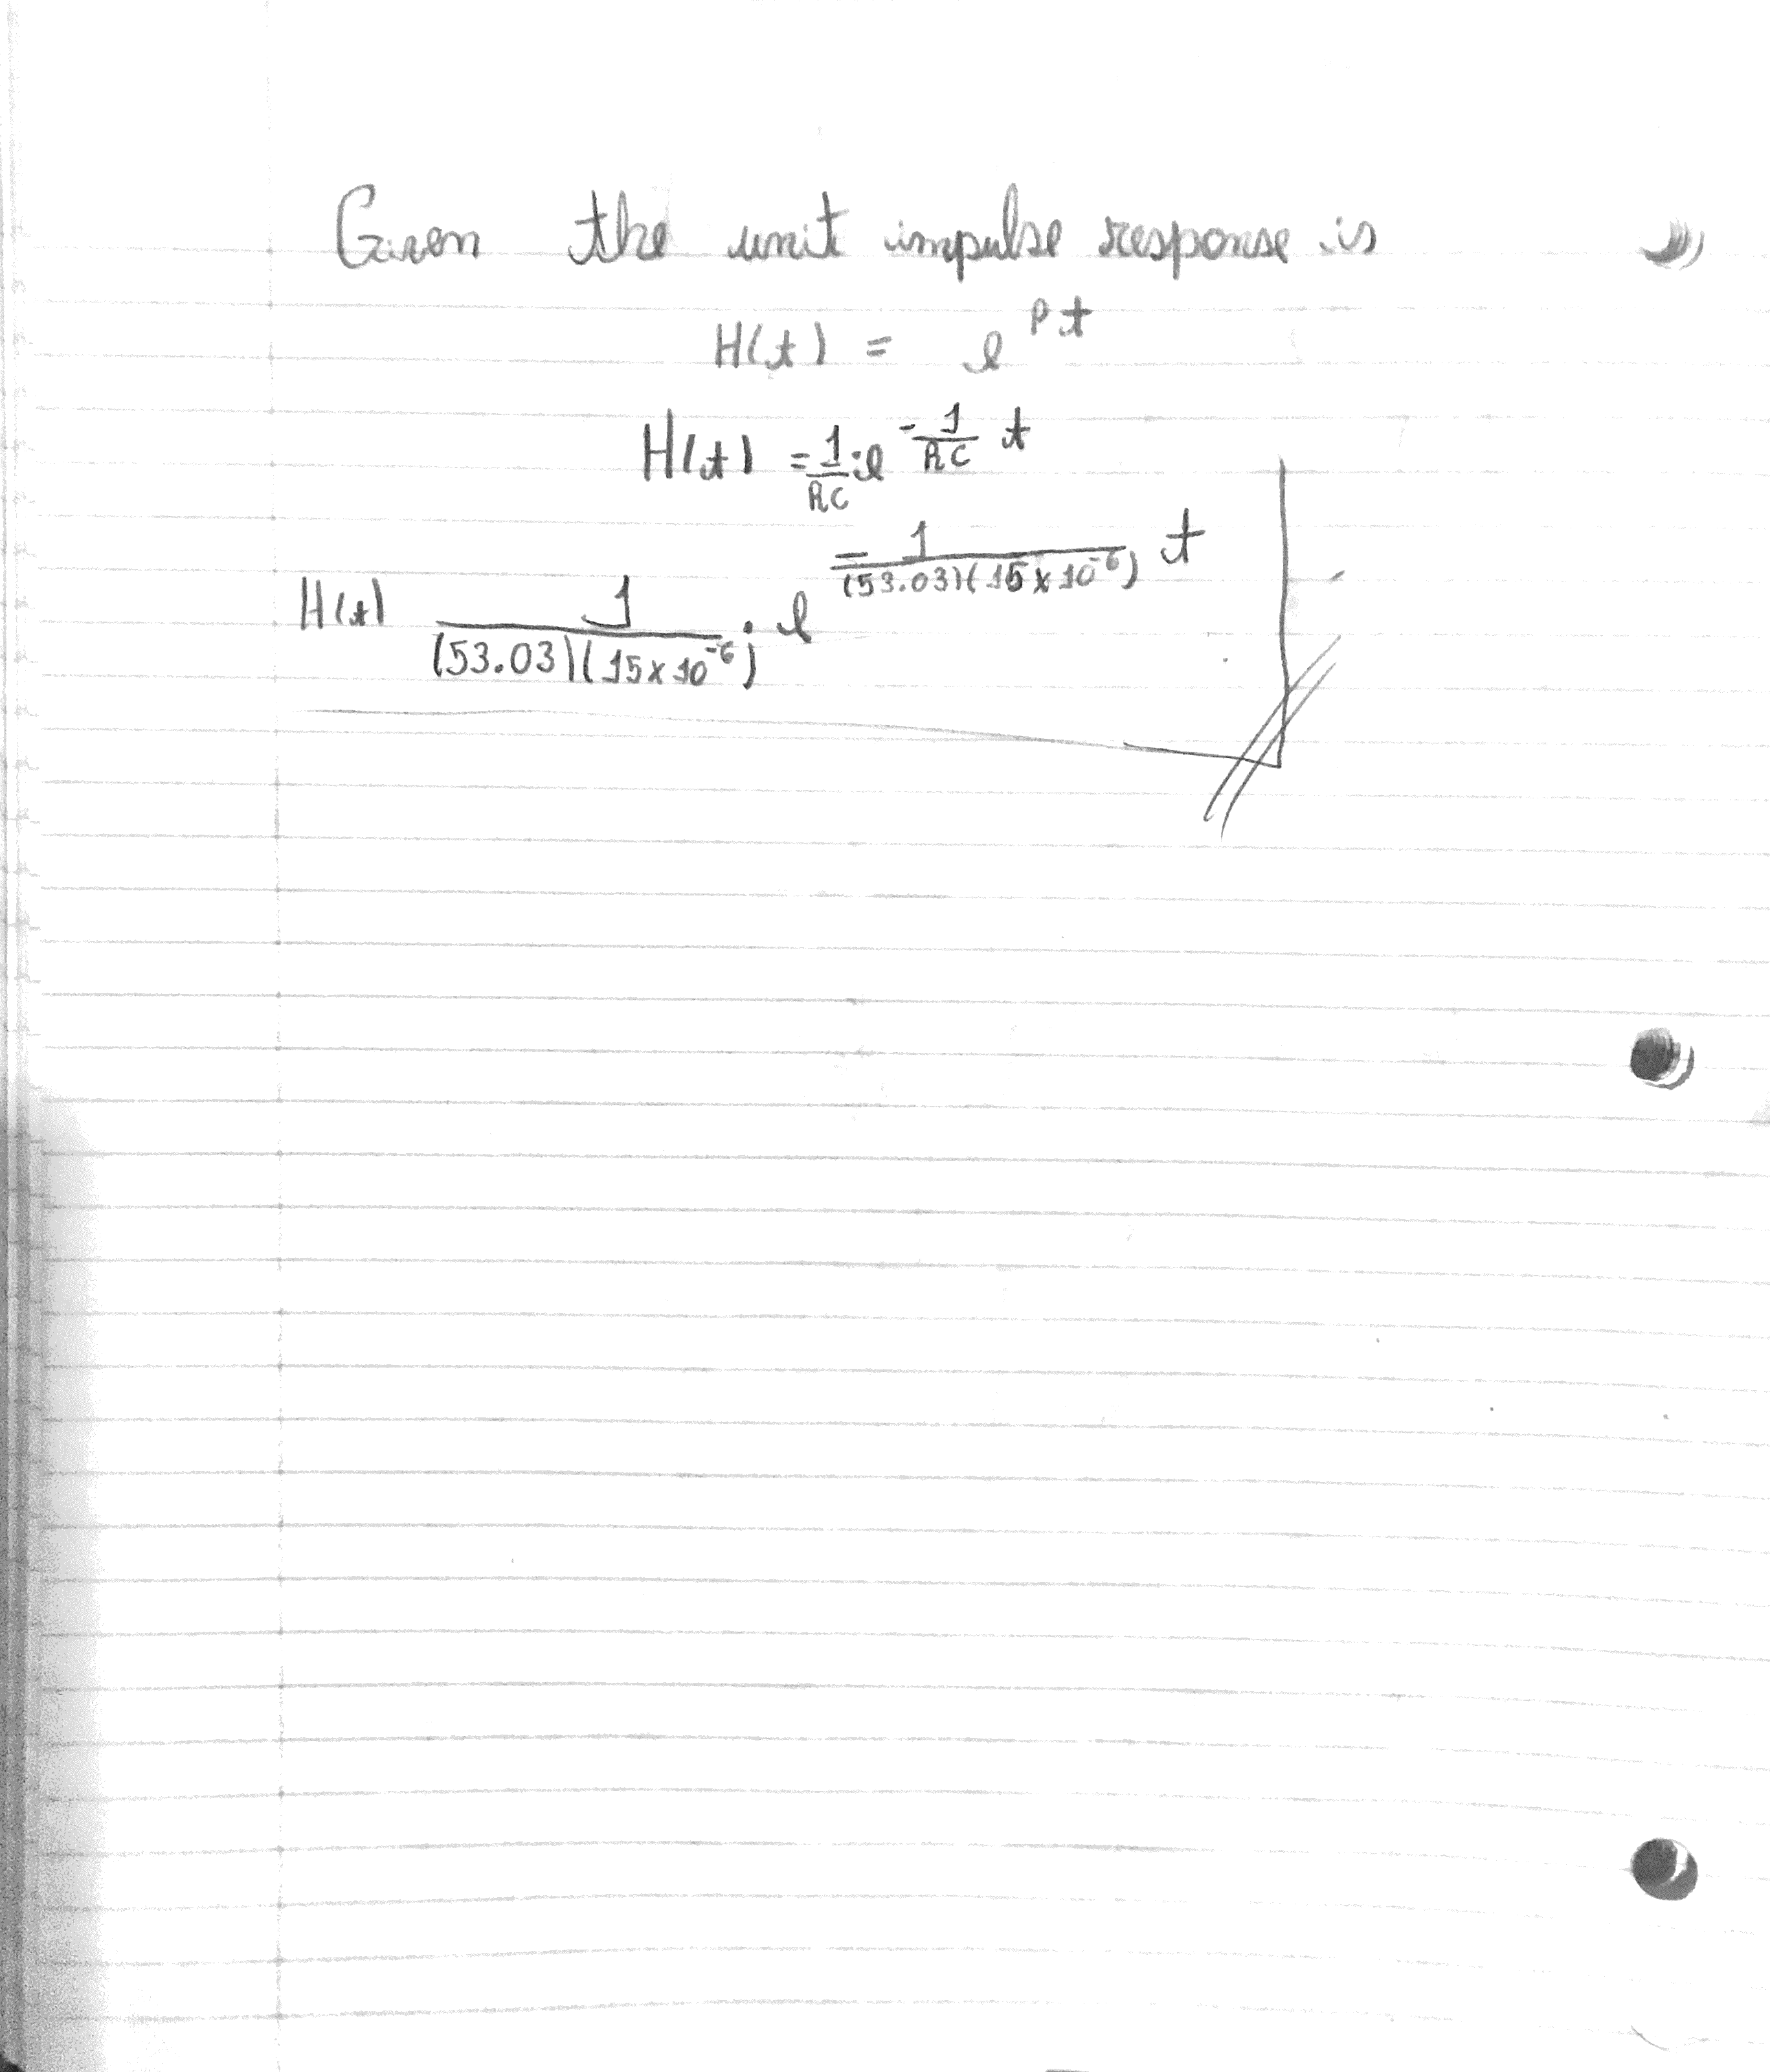 Given the unit impulse response is
H(t) = e^{Pt}
H(t) = \frac{1}{RC} \cdot e^{-\frac{1}{RC} t}
H(t) \frac{1}{(53.03)(15 \times 10^{-6})} \cdot e^{\frac{-1}{(53.03)(15 \times 10^{-6})} t}